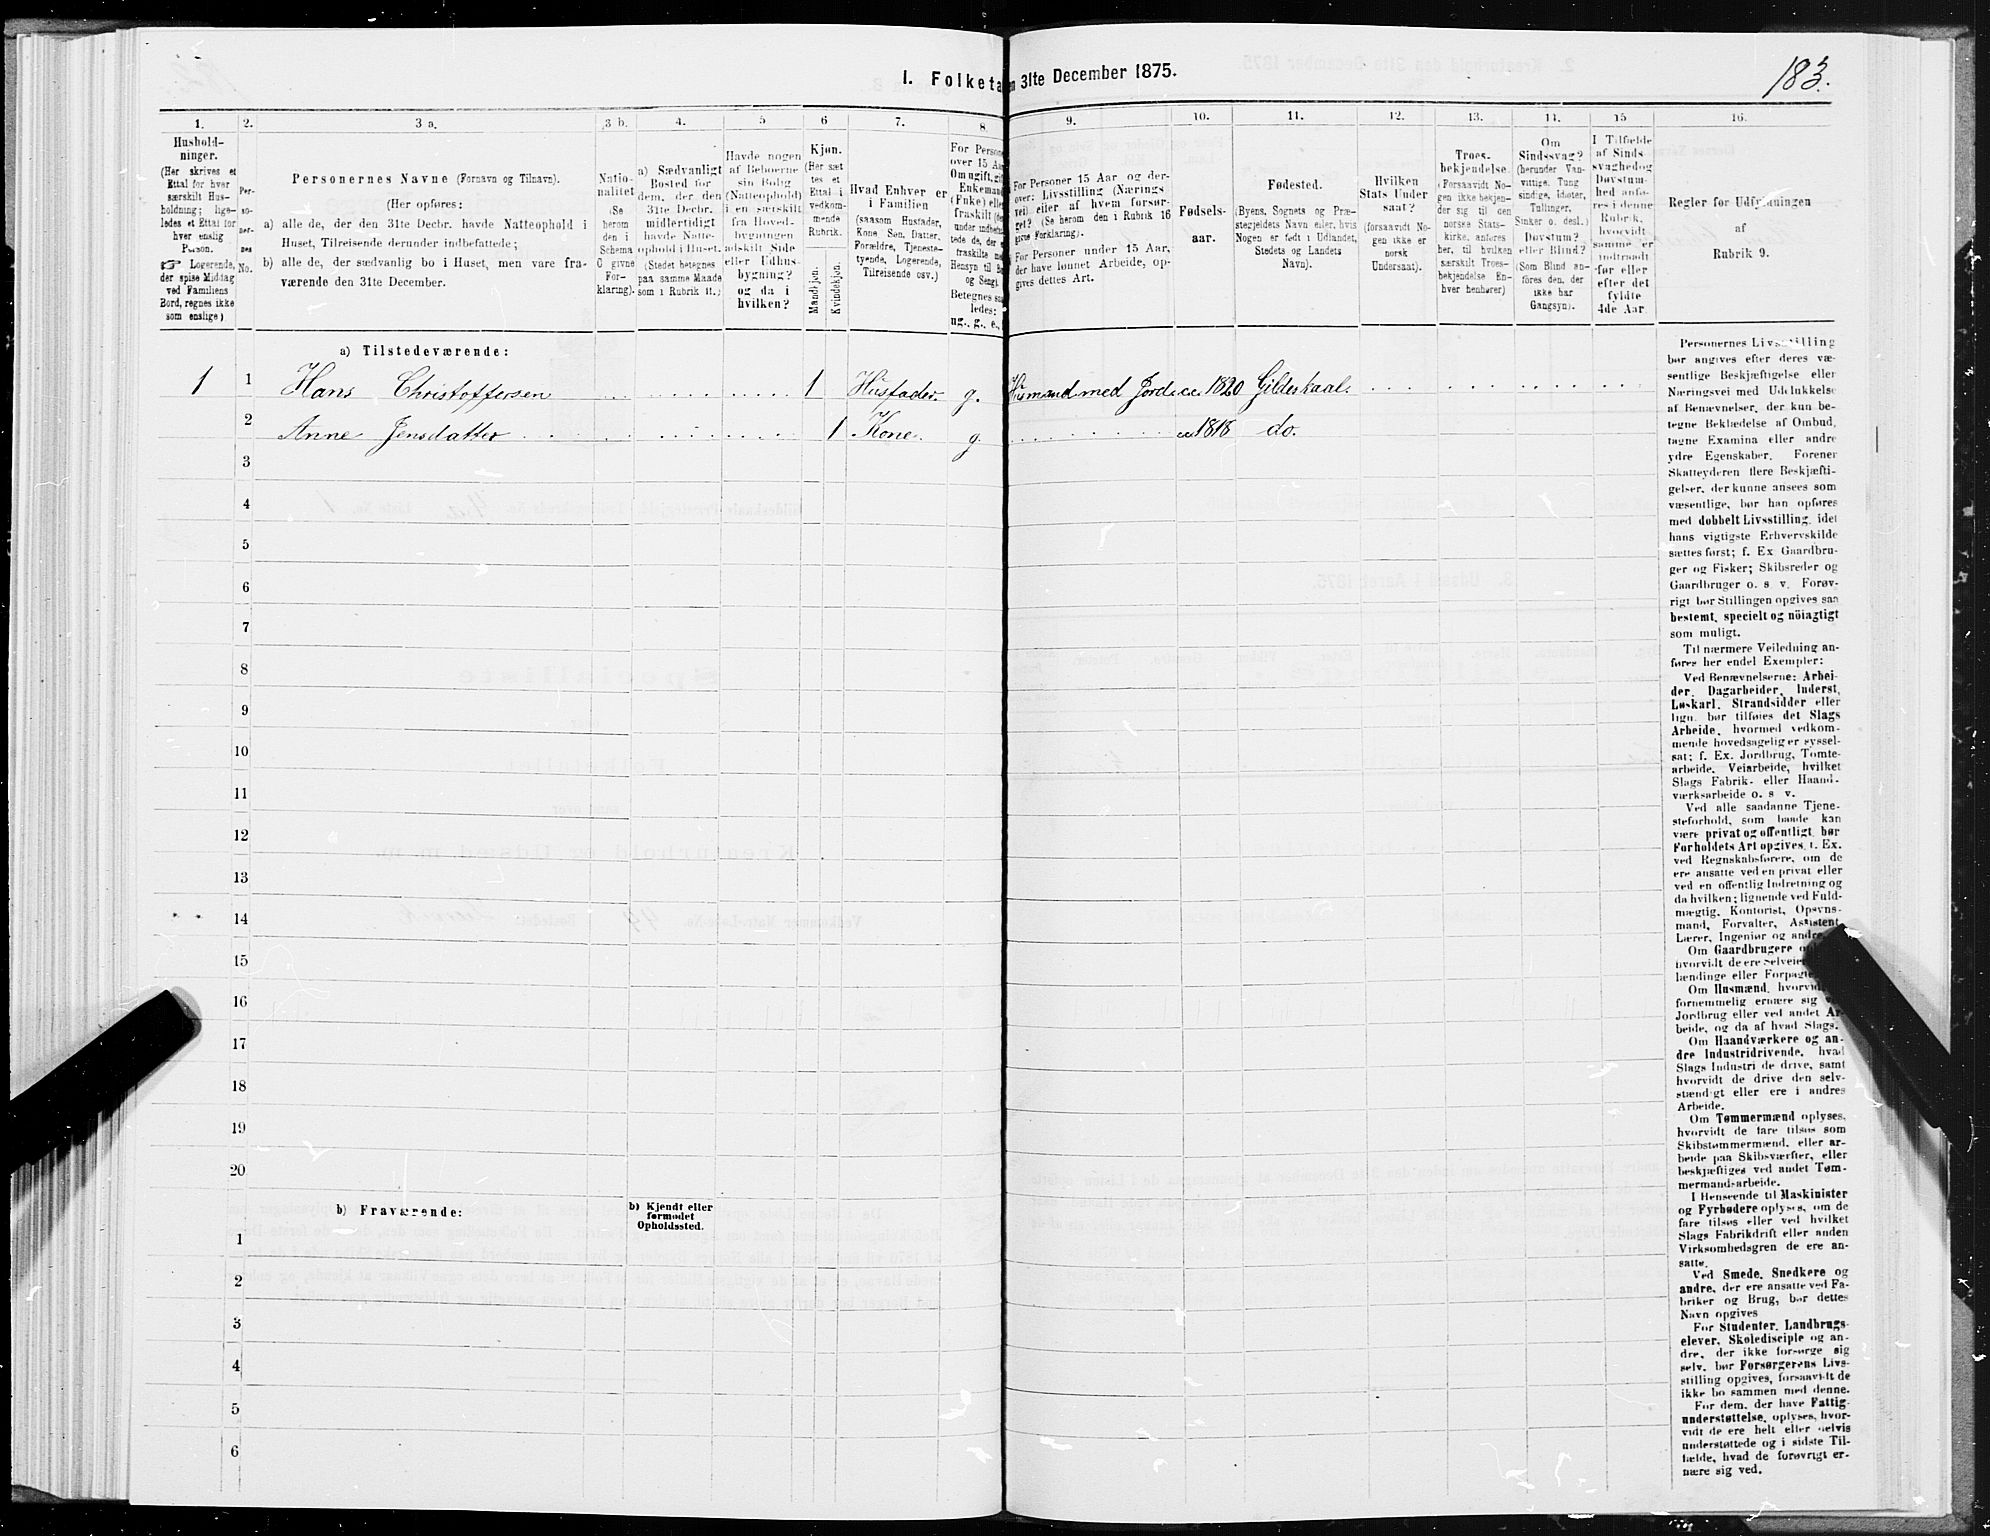 183.
I. Folketa
en 31te December 1875.
1.
2.
3 a.
3 b.
4.
5
6
7.
8.
9.
10.
11.
12.
13.
14.
15
16.
Hushold-
ninger.
(Her skrives et
Ettal for hver
særskilt Hus-
holdning; lige-
ledes et Ettal for
hver enslig
Person.
☞ Logerende,
der spise Middag
ved Familiens
Bord, regnes ikke
som enslige)
Per-
so-
ner-
nes
No.
Personernes Navne (Fornavn og Tilnavn).
(Her opføres:
a) alle de, der den 31te Decbr. havde Natteophold i
Huset, Tilreisende derunder indbefattede;
b) alle de, der sædvanlig bo i Huset, men vare fra-
værende den 31te December.
Natio-
nalitet
(Se
herom
den i
Schema
O givne
For-
klaring).
a) Sædvanligt
Bosted for
dem, der den
31te Decbr.
midlertidigt
havde Natte-
ophold i Huset.
(Stedet betegnes
paa samme Maade
som i Rubrik 11.)
Havde nogen
af Beboerne
sin Bolig
(Natteophold)
i en særskilt
fra Hoved-
bygningen
adskilt Side
eller Udhus-
bygning?
og da i
hvilken?
Kjøn.
(Her sæt
tes et
Ettal i
vedkom-
mende
Rubrik.
Mandkjøn.
Kvindekjøn.
Hvad Enhver er
i Familien
(saasom Husfader,
Kone Søn, Datter,
Forældre, Tjeneste-
tyende, Logerende,
Tilreisende osv.)
For Persone
over 15 Aar
Om ugift, gif
Enkemand
(Enke) elle
fraskilt (de
under indbefat
tede de, der e
fraskilte me
Hensyn til B
og Seng).
Betegnes sa
ledes:
ug., g., e.,
For Personer 15 Aar og der-
over: Livsstilling (Nærings
vei) eller af hvem forsør-
get? (Se herom den i Rubrik 16
givne Forklaring).
For Personer under 15 Aar,
der have lønnet Arbeide, op-
gives dettes Art.
Fødsels-
aar.
Fødested.
(Byens, Sognets og Præ-
stegjeldets Navn eller, hvis
Nogen er født i Udlandet,
Stedets og Landets
Navn).
Hvilken
Stats Under
saat?
(forsaavidt No-
gen ikke er
norsk
Undersaat).
Troes-
bekjendelse.
(Forsaavidt No-
gen ikke bekjen-
der sig til den
norske Stats-
kirke, anføres
her, til hvilken
særskilt Troes-
bekjendelse En-
hver henhører)
Om
Sindssvag?
(herunder Van-
vittige, Tung
sindige, Idioter,
Tullinger,
Sinker o. desl.)
Døvstum?
eller Blind?
(Som Blind an-
føres den, der
ikke har
Gangsyn).
I Tilfælde
af Sinds
svaghed og
Døvstum-
hed anfø-
res i denne
Rubrik,
hvorvidt
samme er
indtraadt
før eller
efter det
fyldte
4de Aar.
Regler for Udfyldningen
af
Rubrik 9.
a) Tilstedeværende:
1 1 Hans Christoffersen 1 Husfader. g. Husmand med Jord. ca. 1820 Gildeskaal.
2 Anne Jensdatter 1 Kone. g. ca 1818 do.
3
4
5
6
7
8
9
10
11
12
13
14
15
16
17
18
19
20
b) Fraværende:
b) Kjendt eller
formodet
Opholdssted.
1
2
3
4
5
6
Personernes Livsstilling
bør angives efter deres væ-
sentlige Beskjæftigelse eller
Næringsvei med Udelukkelse
af Benævnelser, der kun be-
tegne Beklædelse af Ombud,
tagne Examina eller andre
ydre Egenskaber. Forener
Skatteyderen flere Beskjæfti-
gelser, der kunne ansees som
væsentlige, bør han opføres
med dobbelt Livsstilling, idet
hans vigtigste Erhvervskilde
sættes først; f. Ex Gaardbru-
ger og Fisker; Skibsreder og
Gaardbruger o. s v. Forøv-
rigt bør Stillingen opgives saa
bestemt, specielt og nöiagtigt
som muligt.
Til nærmere Veiledning an-
føres her endel Exempler:
Ved Benævnelserne: Arbei-
der, Dagarbeider, Inderst,
Løskarl, Strandsidder eller
lign. bør tilføies det Slags
Arbeide, hvormed vedkom-
mende hovedsagelig er syssel-
sat; f. Ex. Jordbrug, Tomte-
arbeide, Veiarbeide, hvilket
Slags Fabrik- eller Haand-
værksarbeide o. s v.
Ved alle saadanne Tjene-
steforhold, som baade kan
være privat og offentligt, bør
Forholdets Art opgives, f. Ex.
ved Regnskabsførere, om de
ere ansatte ved en privat eller
ved en offentlig Indretning og
da hvilken; lignende ved Fuld-
mægtig, Kontorist, Opsyns-
mand, Forvalter, Assistent,
Lærer, Ingeniør og andre.
Om Gaardbrugere
hvorvidt de ere Selveie
lændinge eller Forpagte
Om Husmænd, hvorvi
fornemmelig ernære sig
Jordbrug eller ved andet Ar-
beide, og da af hvad Slags.
Om Haandværkere og an-
dre Industridrivende, hvad
Slags Industri de drive, samt
hvorvidt de drive den selv-
stændigt eller ere i andres
Arbeide.
Om Tømmermænd oplyses,
hvorvidt de fare tilsøs som
Skibstømmermænd, eller ar-
beide paa Skibsværfter, eller
beskjæftiges ved andet Tøm-
mermandsarbeide.
I Henseende til Maskinister
og Fyrbødere oplyses, om de
fare tilsøs eller ved hvilket
Slags Fabrikdrift eller anden
Virksomhedsgren de ere an-
satte.
Ved Smede, Snedkere og
andre, der ere ansatte ved Fa-
briker og Brug, bør dettes
Navn opgives
For Studenter, Landbrugs-
elever, Skoledisciple og an-
dre, der ikke forsørge sig
selv, bør Forsørgerens Livs-
stilling opgives, forsaavidt de
ikke bo sammen med denne.
For dem, der have Fattig-
understøttelse, oplyses, hvor-
vidt de ere helt eller delvis
understøttede og i sidste Til-
fælde, hvad de forøvrigt er-
nære sig ved.